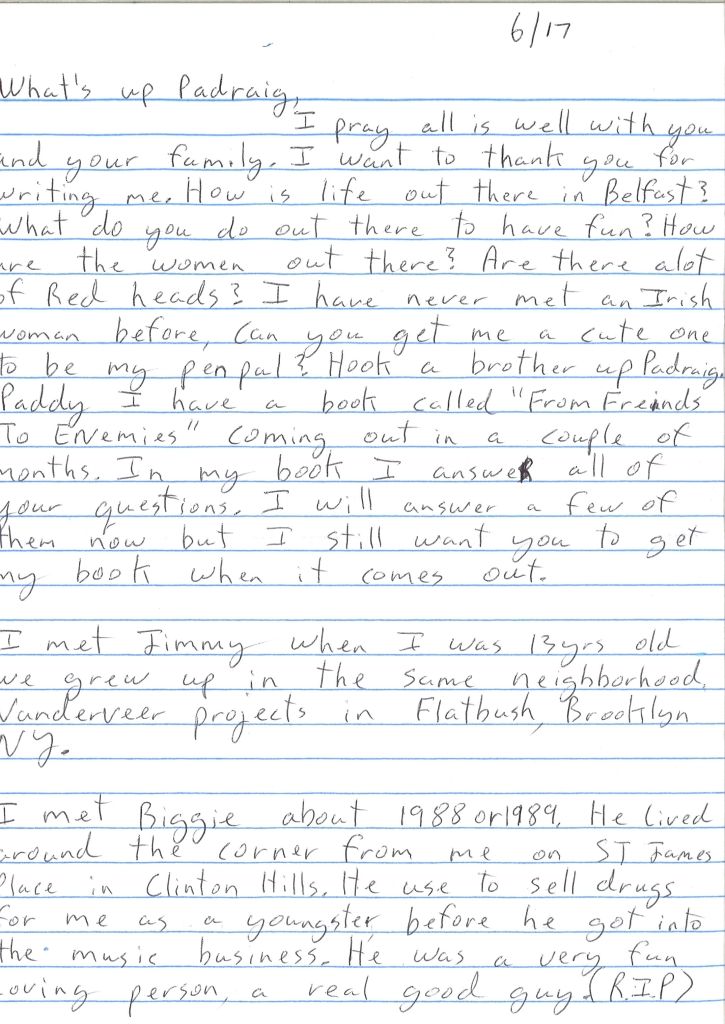 6/17
What's up Padraig,
I pray all is well with you
and your family. I want to thank you for
writing me. How is life out there in Belfast?
What do you do out there to have fun? How
are the women out there? Are there alot
of Red heads? I have never met an Irish
woman before, Can you get me a cute one
to be my pen pal? Hook a brother up Padraig.
Paddy I have a book called "From Freinds
To Enemies" coming out in a couple of
months. In my book I answer all of
your questions. I will answer a few of
them now but I still want you to get
my book when it comes out.
I met Jimmy when I was 13yrs old
we grew up in the same neighborhood,
Vanderveer projects in Flatbush, Brooklyn
NY.
I met Biggie about 1988 or 1989. He lived
around the corner from me on ST James
Place in Clinton Hills. He use to sell drugs
for me as a youngster before he got into
the music business. He was a very fun
loving person, a real good guy (R.I.P)